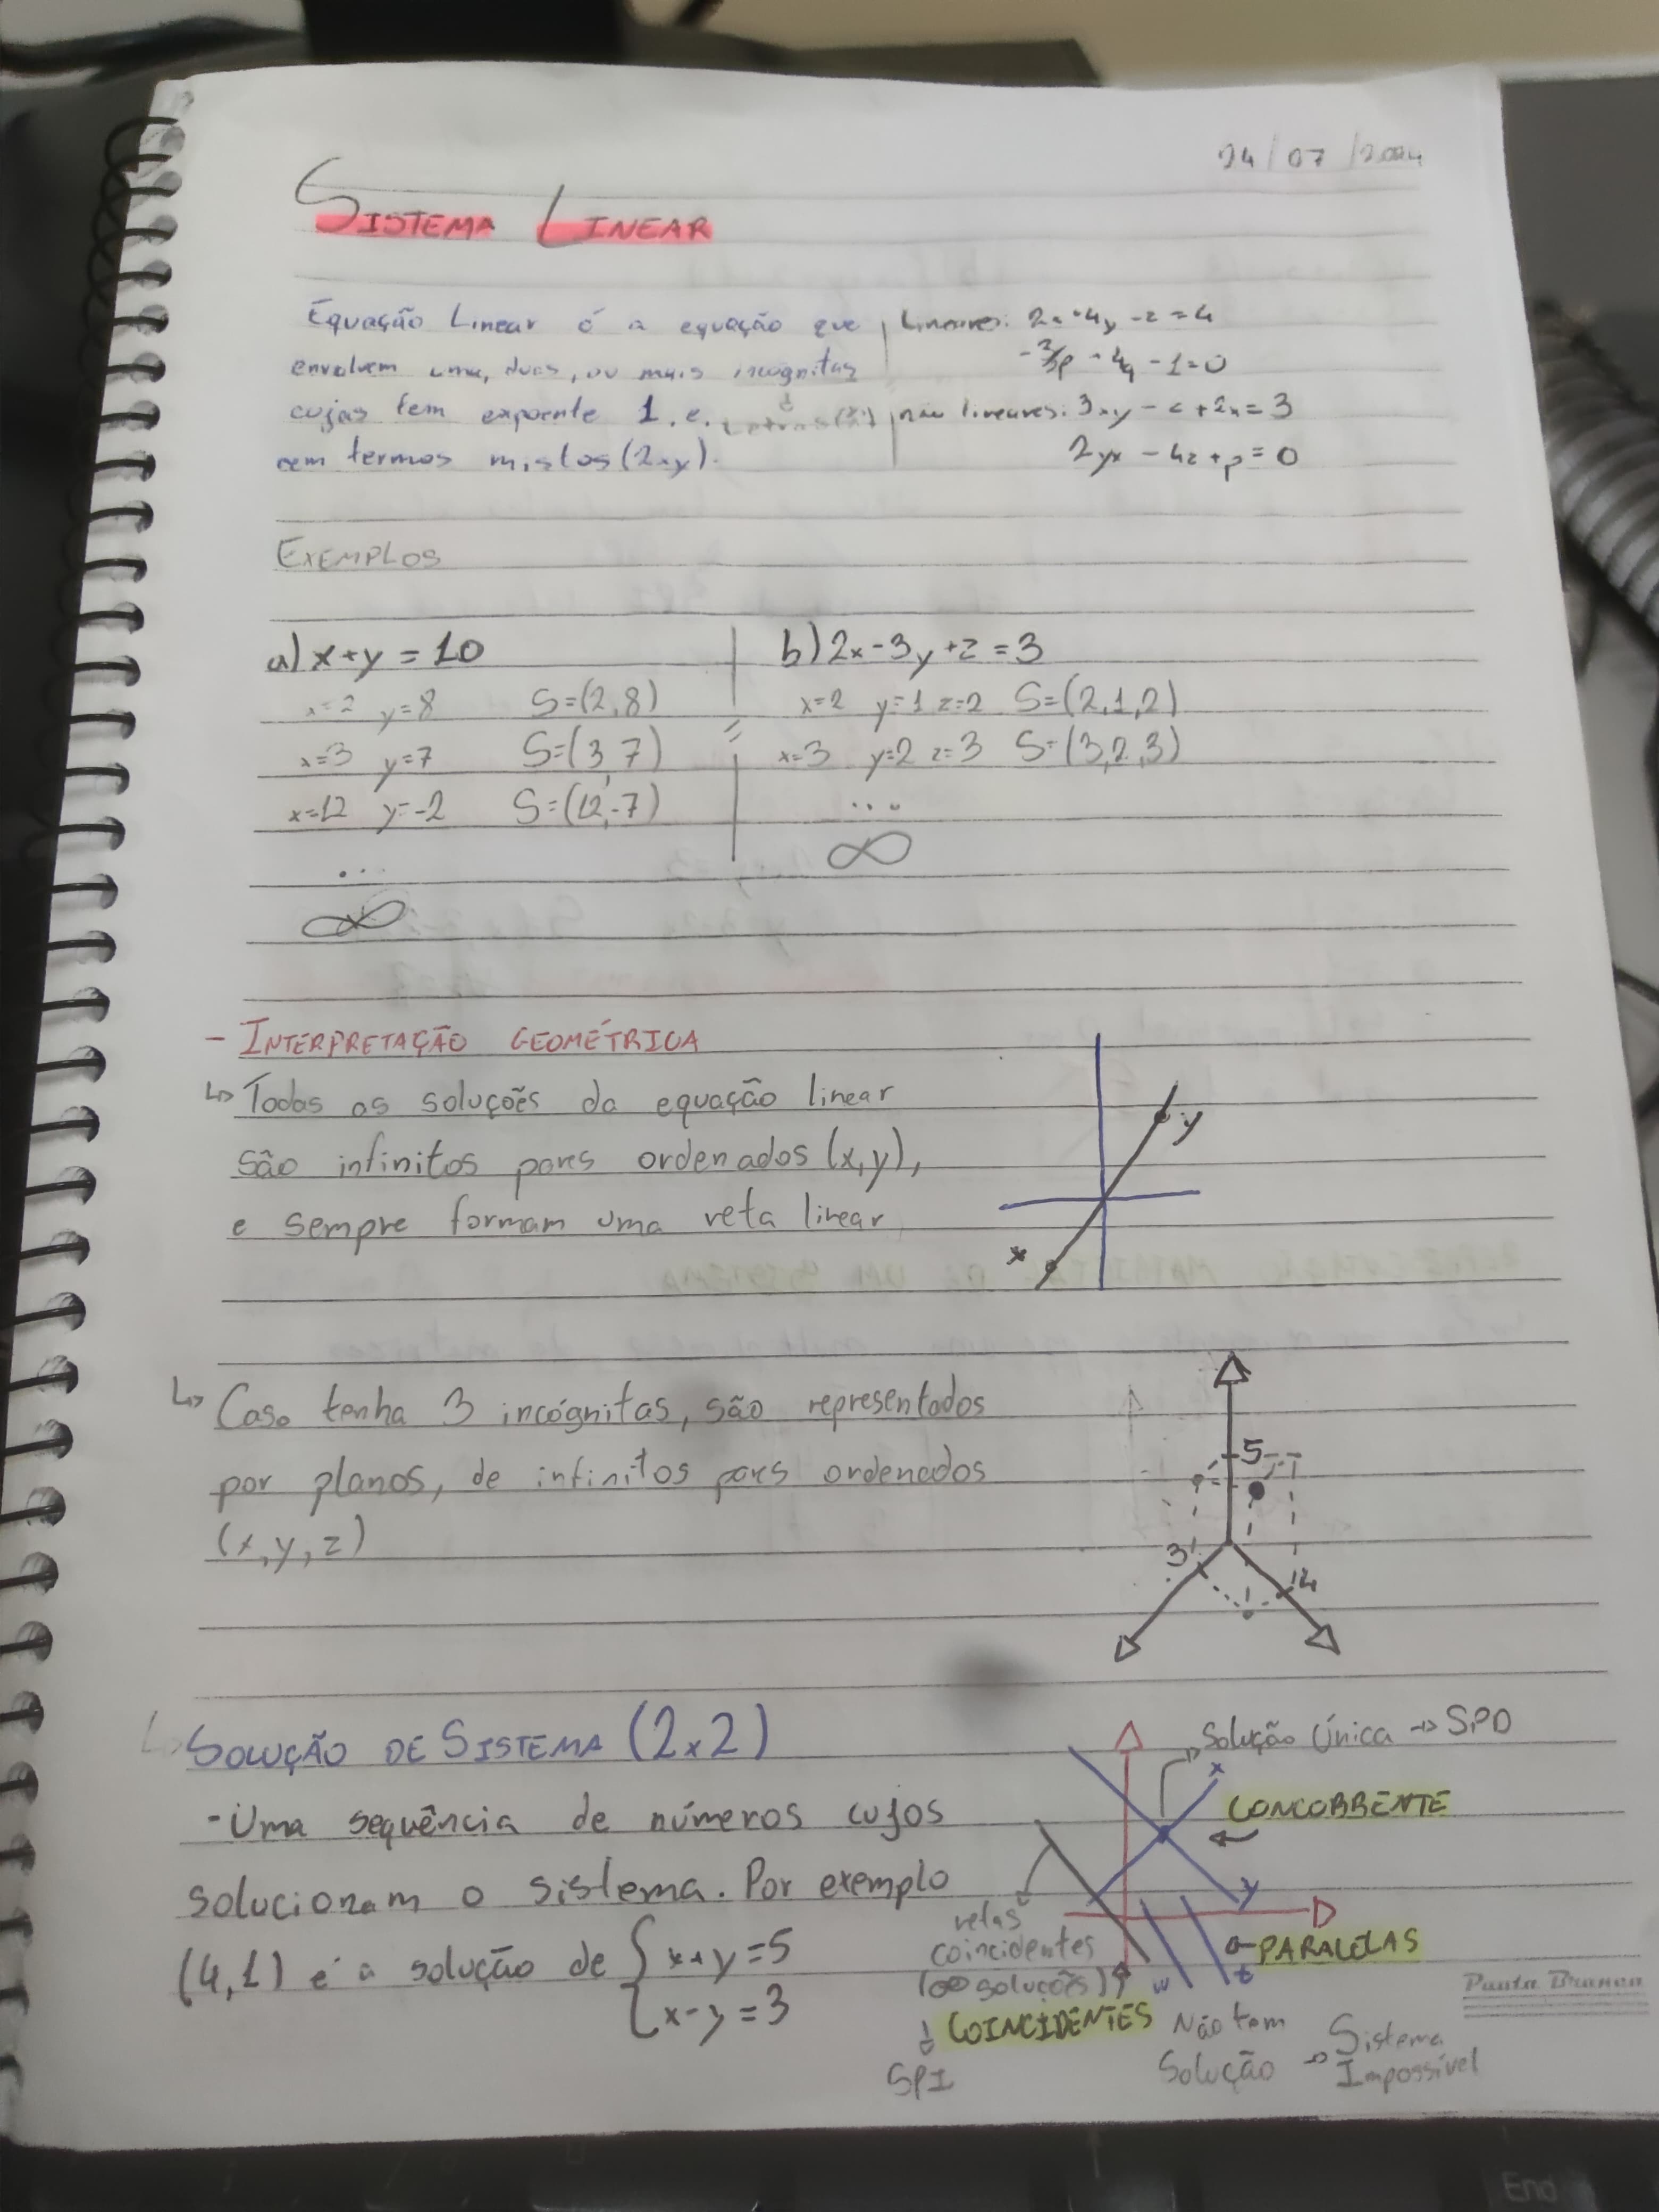 24/07/2024
SISTEMA LINEAR
Equação Linear é a equação que
envolvem uma, duas, ou mais incognitas
cujas tem expoente 1. e.
sem termos mistos (2xy).
Lineares: 2x + 4y - z = 4
- 4q - 1 = 0
não lineares: 3xy - z + 2x = 3
2yx - 4z + p = 0
EXEMPLOS
a) x + y = 10
x=2 y=8 S=(2,8)
x=3 y=7 S=(3,7)
x=12 y=-2 S=(12,-7)
...
∞
b) 2x - 3y + z = 3
x=2 y=1 z=2 S=(2,1,2)
x=3 y=2 z=3 S=(3,2,3)
...
∞
- INTERPRETAÇÃO GEOMÉTRICA
↳ Todas as soluções da equação linear
são infinitos pares ordenados (x,y),
e sempre formam uma reta linear
y
x
↳ Caso tenha 3 incógnitas, são representados
por planos, de infinitos pares ordenados
(x,y,z)
5
3
4
↳ SOLUÇÃO DE SISTEMA (2x2)
- Uma sequência de números cujos
solucionam o sistema. Por exemplo
(4,1) é a solução de { x+y=5
x-y=3
Solução Única → SPD
x
CONCORRENTE
y
retas
coincidentes
(∞ soluções)
COINCIDENTES
SPI
PARALELAS
w t
Não tem
Solução → Sistema
Impossível
Pauta Branca
End